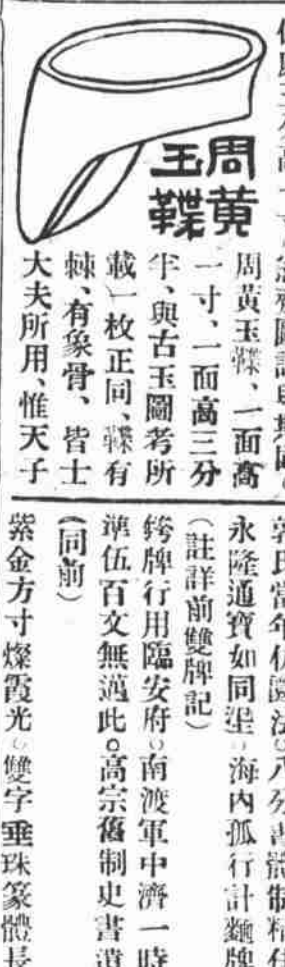 周黃
玉鞢
周黃玉鞢、一面高
一寸、一面高三分
半、與古玉圖考所
載一枚正同、鞢有
棘、有象骨、皆士
大夫所用、惟天子
永隆通寶如同埊。海內孤行計
（註詳前雙牌記）
牌行用臨安府。南渡軍中濟一時
準伍百文無過此。高宗舊制史書
（同前）
紫金方寸燦霞光。雙字垂珠篆體長